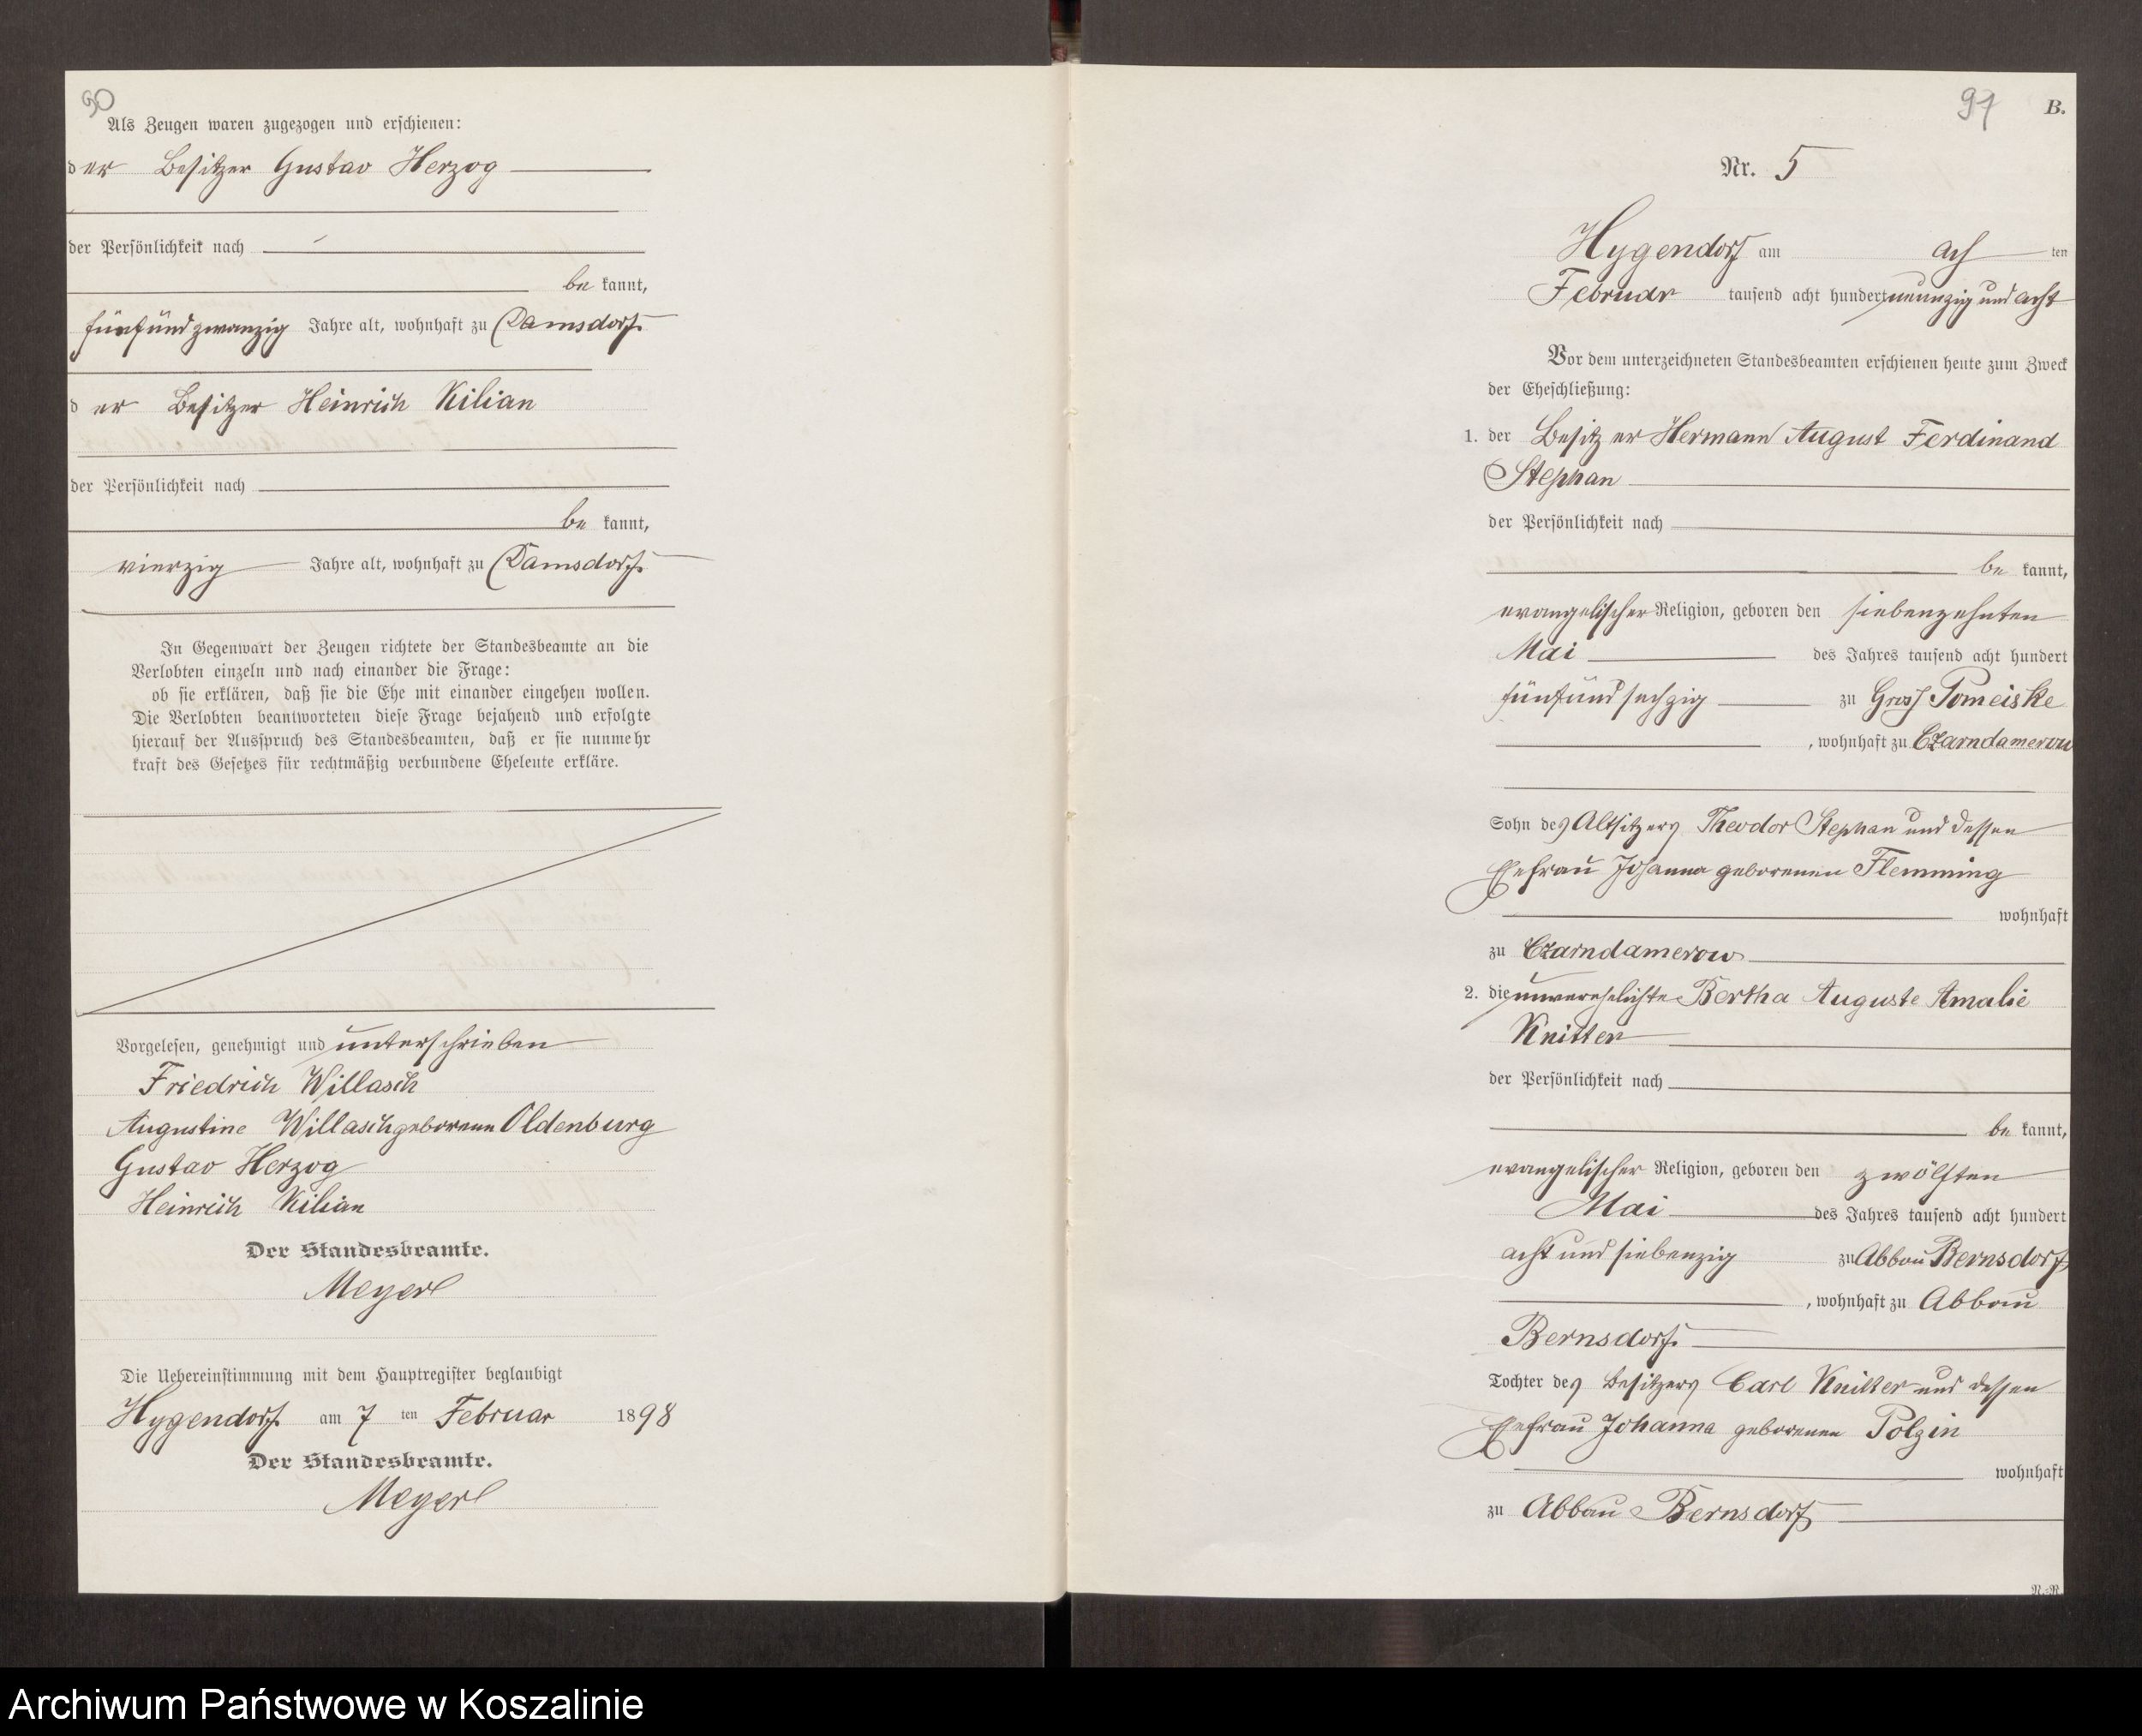 90
Als Zeugen waren zugezogen und erschienen:
der Besitzer Gustav Herzog
der Persönlichkeit nach
be kannt,
fünfundzwanzig Jahre alt, wohnhaft zu Damsdorf
der Besitzer Heinrich Kilian
der Persönlichkeit nach
be kannt,
vierzig Jahre alt, wohnhaft zu Damsdorf
In Gegenwart der Zeugen richtete der Standesbeamte an die
Verlobten einzeln und nach einander die Frage:
ob sie erklären, daß sie die Ehe mit einander eingehen wollen.
Die Verlobten beantworteten diese Frage bejahend und erfolgte
hierauf der Ausspruch des Standesbeamten, daß er sie nunmehr
kraft des Gesetzes für rechtmäßig verbundene Eheleute erkläre.
Vorgelesen, genehmigt und unterschrieben
Friedrich Willasch
Augustine Willasch geborene Oldenburg
Gustav Herzog
Heinrich Kilian
Der Standesbeamte.
Meyerl
Die Uebereinstimmung mit dem Hauptregister beglaubigt
Hygendorf am 7 ten Februar 1898
Der Standesbeamte.
Meyerl
91 B.
Nr. 5
Hygendorf am ach ten
Februar tausend acht hundert neunzig und acht
Vor dem unterzeichneten Standesbeamten erschienen heute zum Zweck
der Eheschließung:
1. der Besitzer Hermann August Ferdinand
Stephan
der Persönlichkeit nach
be kannt,
evangelischer Religion, geboren den siebenzehnten
Mai des Jahres tausend acht hundert
fünfundsechzig zu Gross Pomeiske
, wohnhaft zu Czarndamerow
Sohn des Altsitzers Theodor Stephan und dessen
Ehefrau Johanna geborenen Flemming
wohnhaft
zu Czarndamerow
2. die unverehelichte Bertha Auguste Amalie
Knitter
der Persönlichkeit nach
be kannt,
evangelischer Religion, geboren den zwölften
Mai des Jahres tausend acht hundert
acht und siebenzig zu Abbau Bernsdorf
, wohnhaft zu Abbau
Bernsdorf
Tochter des Besitzers Carl Knitter und dessen
Ehefrau Johanna geborenen Polzin
wohnhaft
zu Abbau Bernsdorf
N.-R.
Archiwum Państwowe w Koszalinie